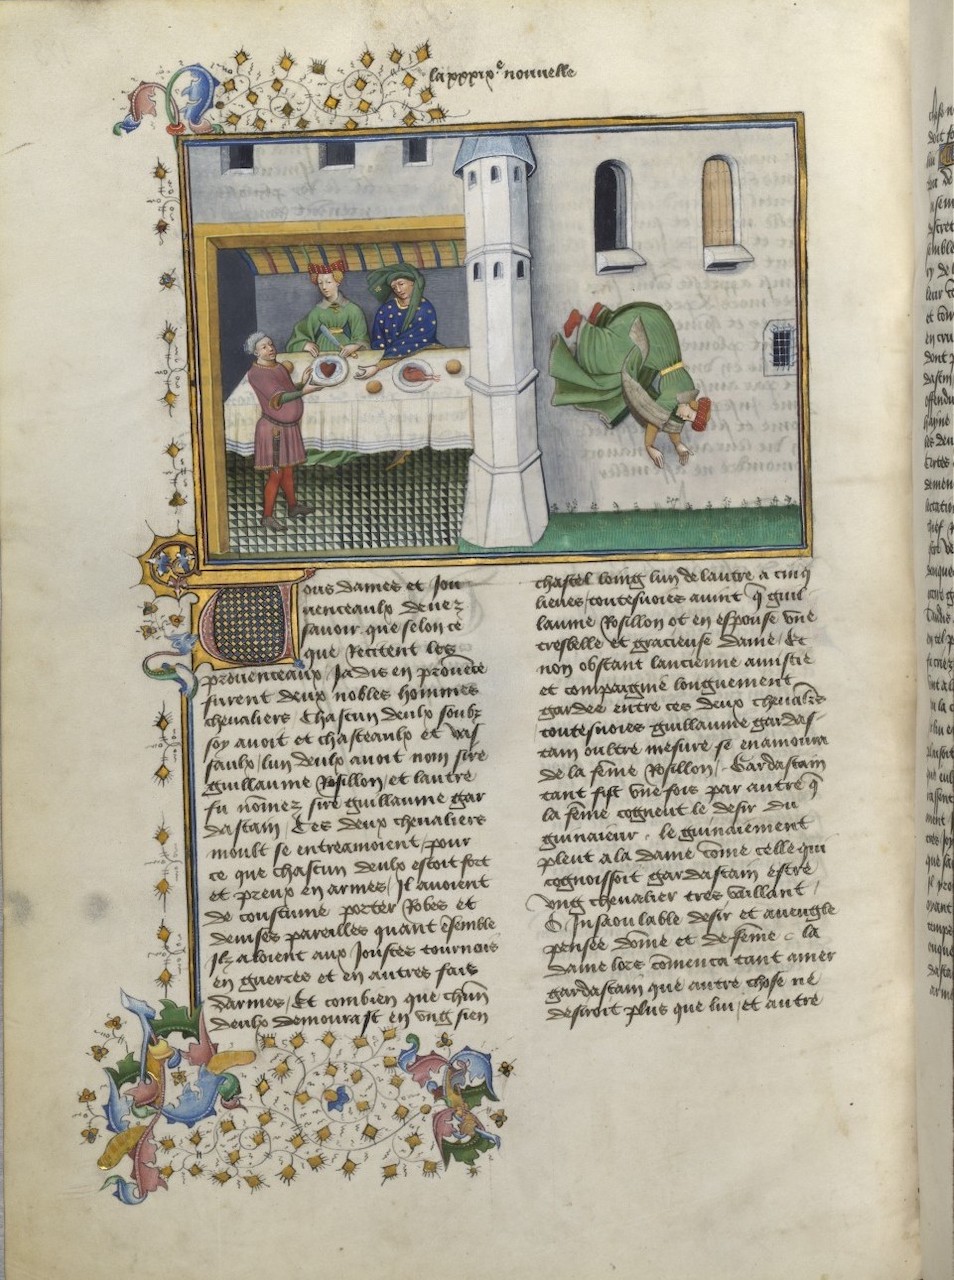 la xxxix.e nouuelle
Vous dames et jou
uenceaulx deuez
sauoir que selon ce
que Recitent les
prouenceaux / Jadis en prouēce
furent deux nobles hommes
cheualiers Chascun deulx soubz
soy auoit et chasteaulx et vas
saulx / lun deulx auoit nom sire
guillaume Rosillon / et lautre
fu nōmez sire guillaume gar
dastain / Ces deux cheualiers
moult se entreamoient / pour
ce que chascun deulx estoit fort
et preux en armes / Jl auoient
de coustume porter Robes et
deuises pareilles quant ēsemble
Jlz aloient aux Joustes tournois
en guerres et en autres fais
darmes / Et combien que chūn
deulx demourast en vng sien
chastel loing lun de lautre a cinq
lieues / toutesuoies auint q̄ guil
laume Rosillon ot en espouse vne
tresbelle et gracieuse dame / Et
non obstant lancienne amistie
et compaignie longuement
gardee entre ces deux cheualr̄s
toutesuoies guillaume gardas-
tain oultre mesure se enamoura
de la fēme Rosillon / Gardastain
tant fist vne fois par autre q̄
la fēme cogneut le desir du
guinaieur . le guinaiement
pleut a la dame cōme celle qui
cognoissoit gardastain estre
vng cheualier tres vaillant /
O Insaoulable desir et aueugle
pensee dōme et de fēme . la
dame lors cōmenca tant amer
gardastain que autre chose ne
desiroit plus que lui / et autre